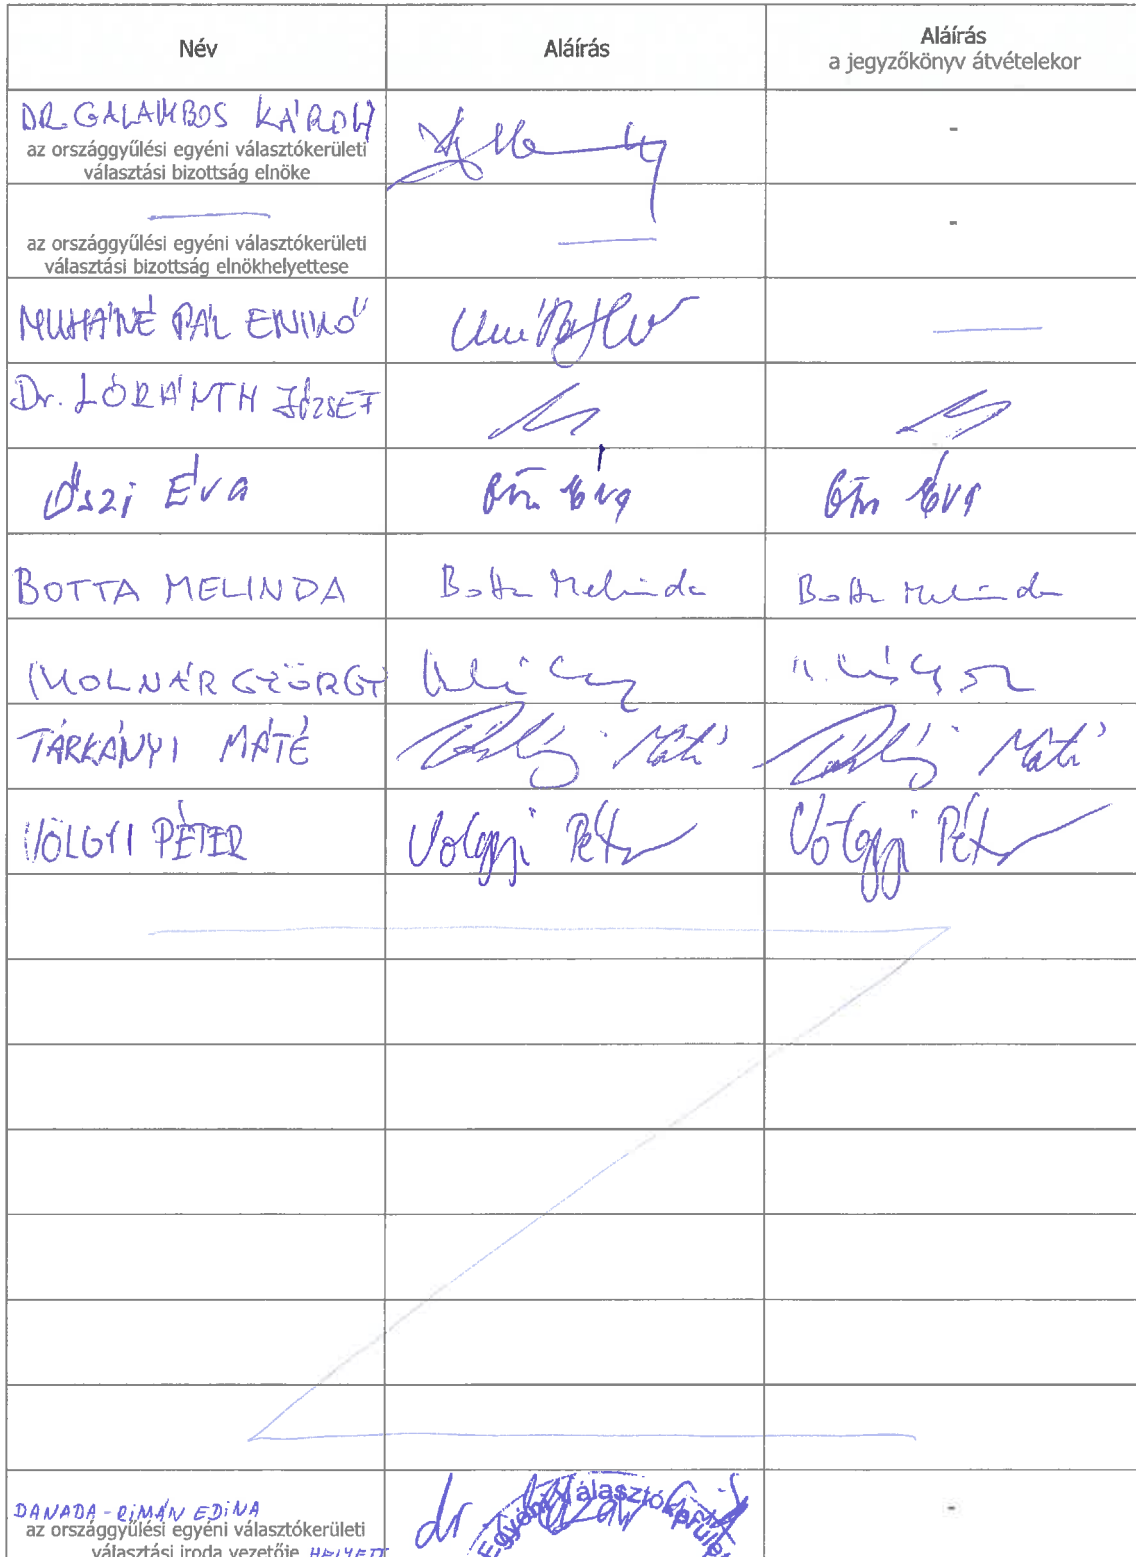 Név Aláírás Aláírás
a jegyzőkönyv átvételekor
DR. GALAMBOS KÁROLY
az országgyűlési egyéni választókerületi
választási bizottság elnöke
-
az országgyűlési egyéni választókerületi
választási bizottság elnökhelyettese
-
MUHAINÉ PÁL ENIKŐ
Dr. LÓRÁNTH JÓZSEF
Őszi Éva Őszi Éva Őszi Éva
BOTTA MELINDA Botta Melinda Botta Melinda
MOLNÁR GYÖRGY
TÁRKÁNYI MÁTÉ Tárkányi Máté Tárkányi Máté
VÖLGYI PÉTER Völgyi Péter Völgyi Péter
DANADA-RIMÁN EDINA dr
az országgyűlési egyéni választókerületi
választási iroda vezetője HELYETT
Egyéni Választókerület
-